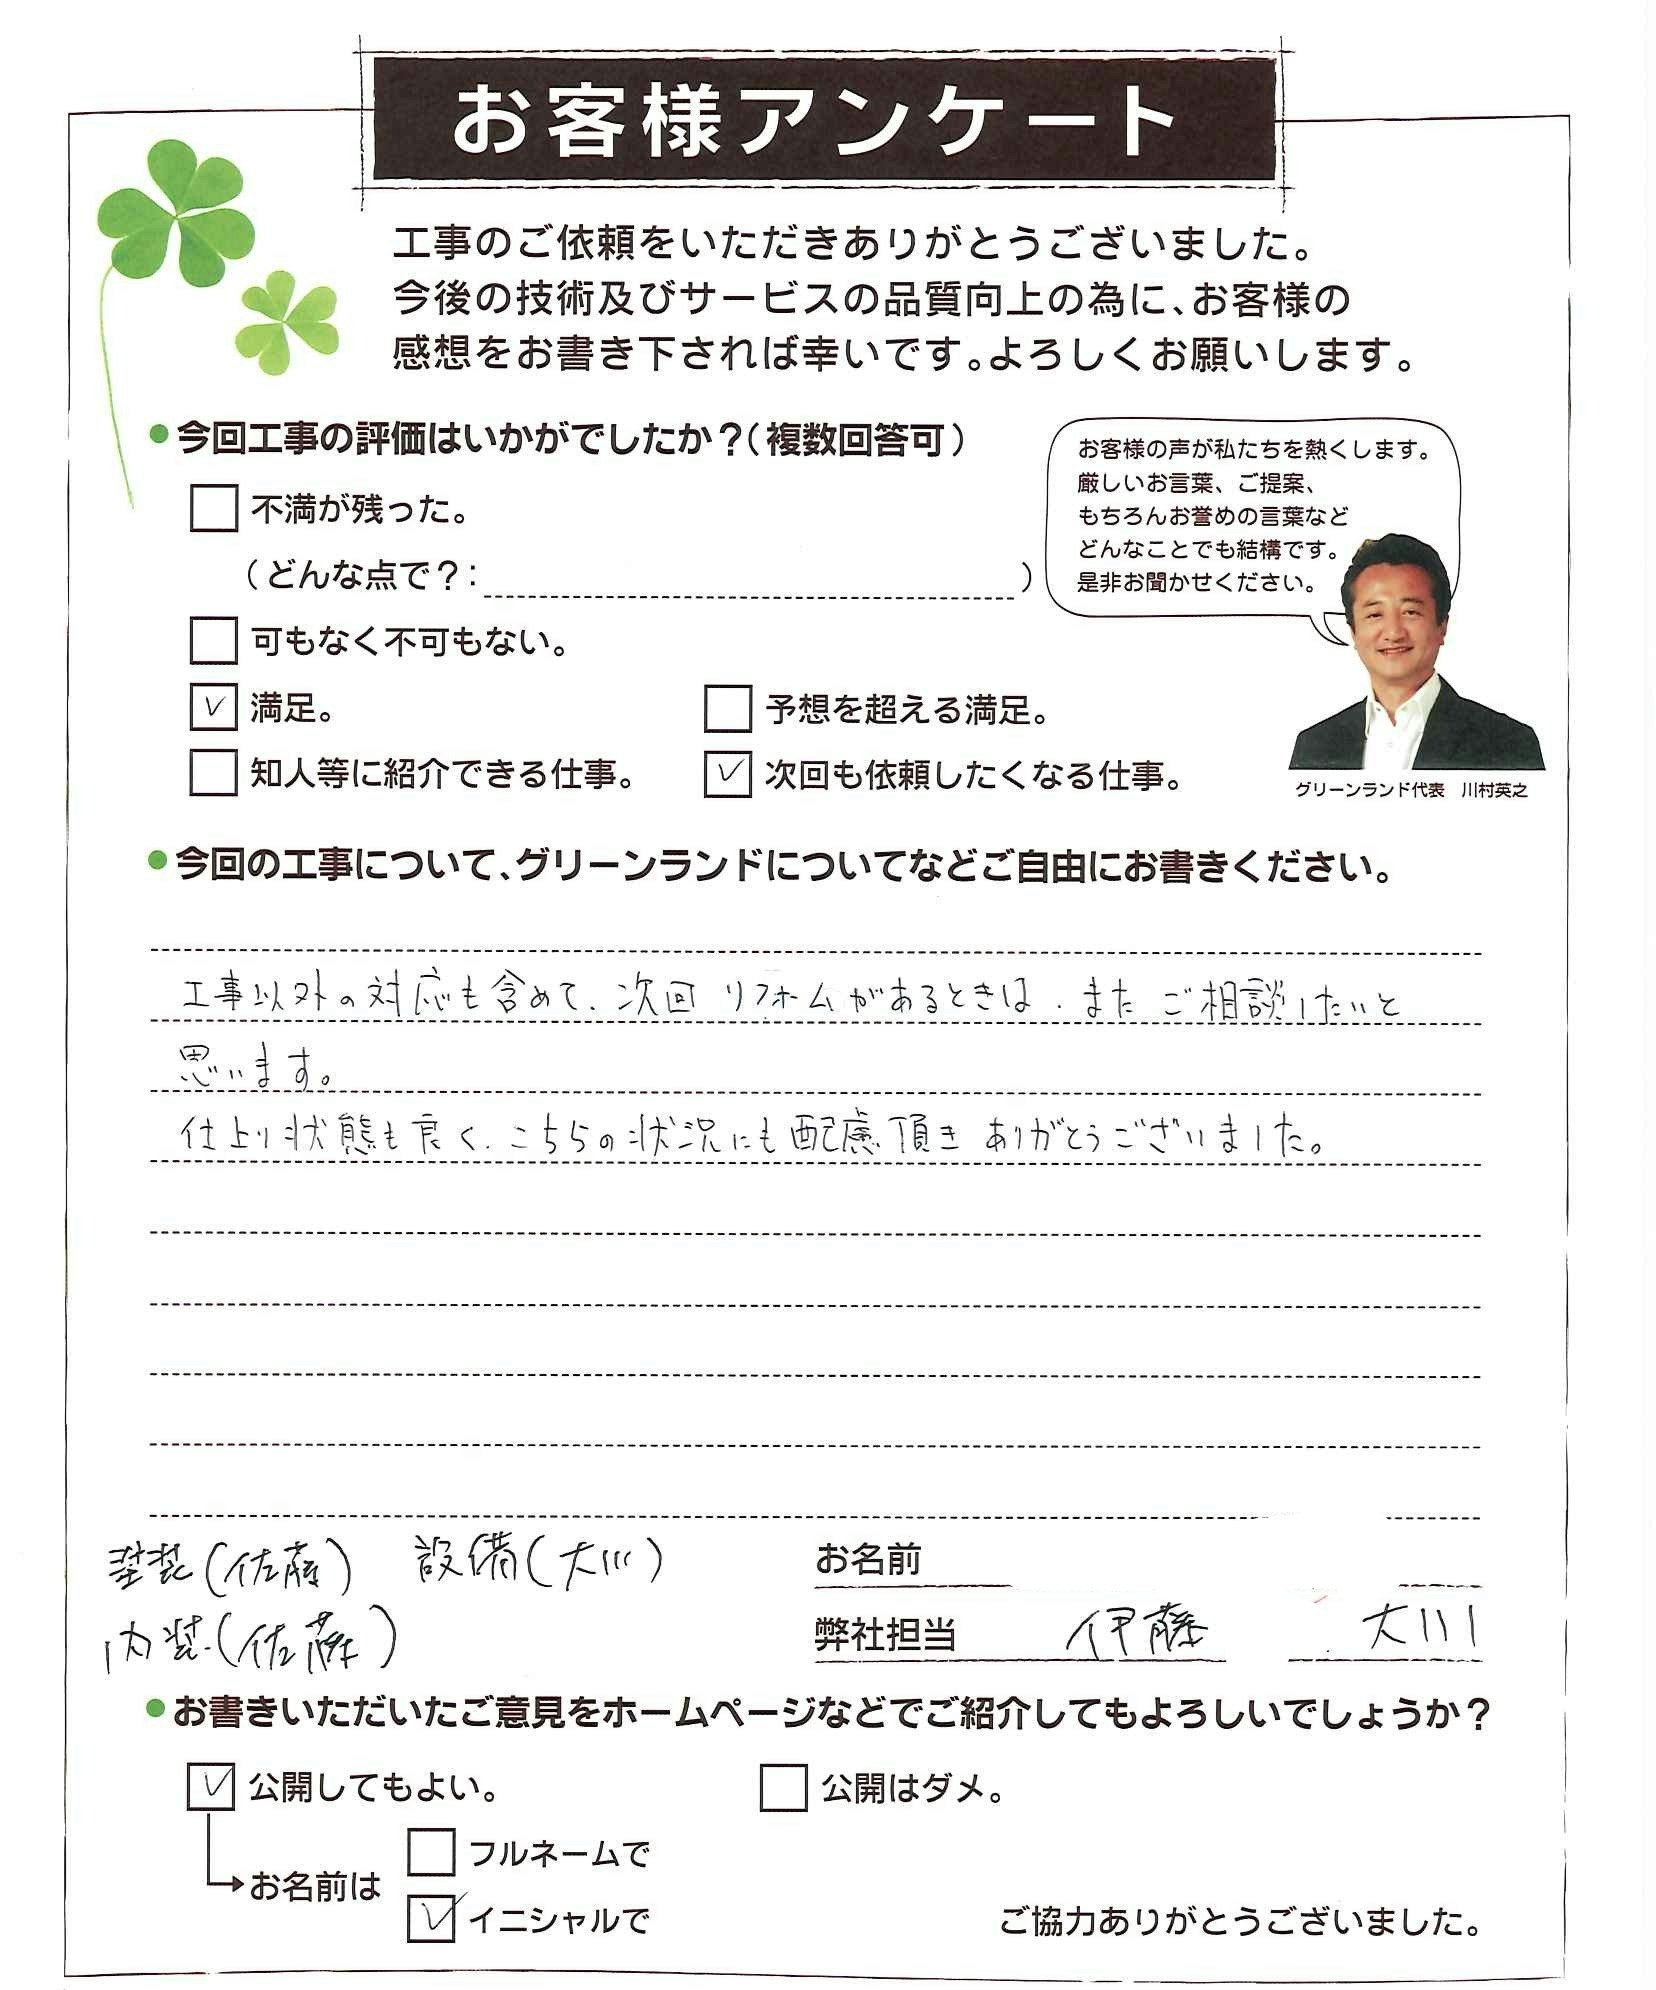 お客様アンケート
工事のご依頼をいただきありがとうございました。
今後の技術及びサービスの品質向上の為に、お客様の
感想をお書き下されば幸いです。よろしくお願いします。
●今回工事の評価はいかがでしたか？（複数回答可）
お客様の声が私たちを熱くします。
厳しいお言葉、ご提案、
もちろんお誉めの言葉など
どんなことでも結構です。
是非お聞かせください。
不満が残った。
（どんな点で？：　）
可もなく不可もない。
満足。　予想を超える満足。
知人等に紹介できる仕事。　次回も依頼したくなる仕事。
グリーンランド代表　川村英之
●今回の工事について、グリーンランドについてなどご自由にお書きください。
工事以外の対応も含めて、次回 リフォームがあるときは、また ご相談したいと
思います。
仕上り状態も良く、こちらの状況にも配慮頂き ありがとうございました。
塗装（佐藤）　設備（大川）　お名前
内装（佐藤）　弊社担当　伊藤　大川
●お書きいただいたご意見をホームページなどでご紹介してもよろしいでしょうか？
公開してもよい。　公開はダメ。
フルネームで
お名前は
イニシャルで　ご協力ありがとうございました。